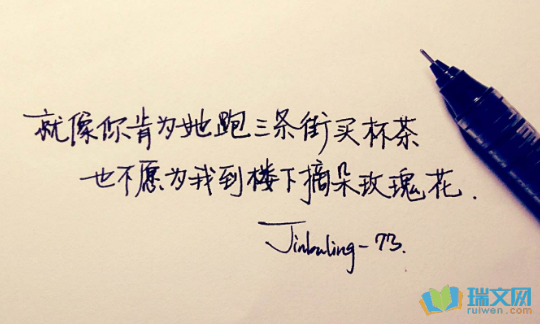 就像你肯为她跑三条街买杯茶
也不愿为我到楼下摘朵玫瑰花.
Jinbuling-73.
瑞文网
ruiwen.com